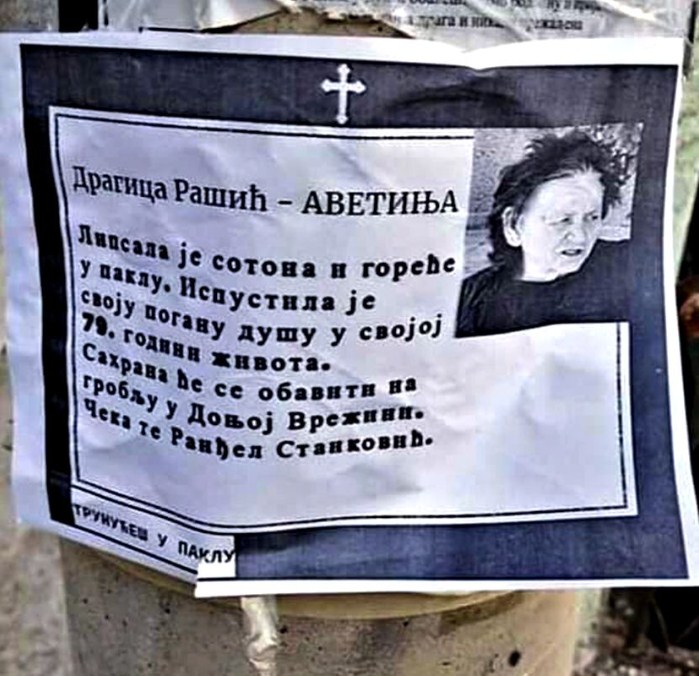 Драгица Рашић – АВЕТИЊА
Липсала је сотона и гореће
у паклу. Испустила је
своју погану душу у својој
79. години живота.
Сахрана ће се обавити на
гробљу у Доњој Врежини.
Чека те Ранђел Станковић.
ТРУНУЋЕШ У ПАКЛУ